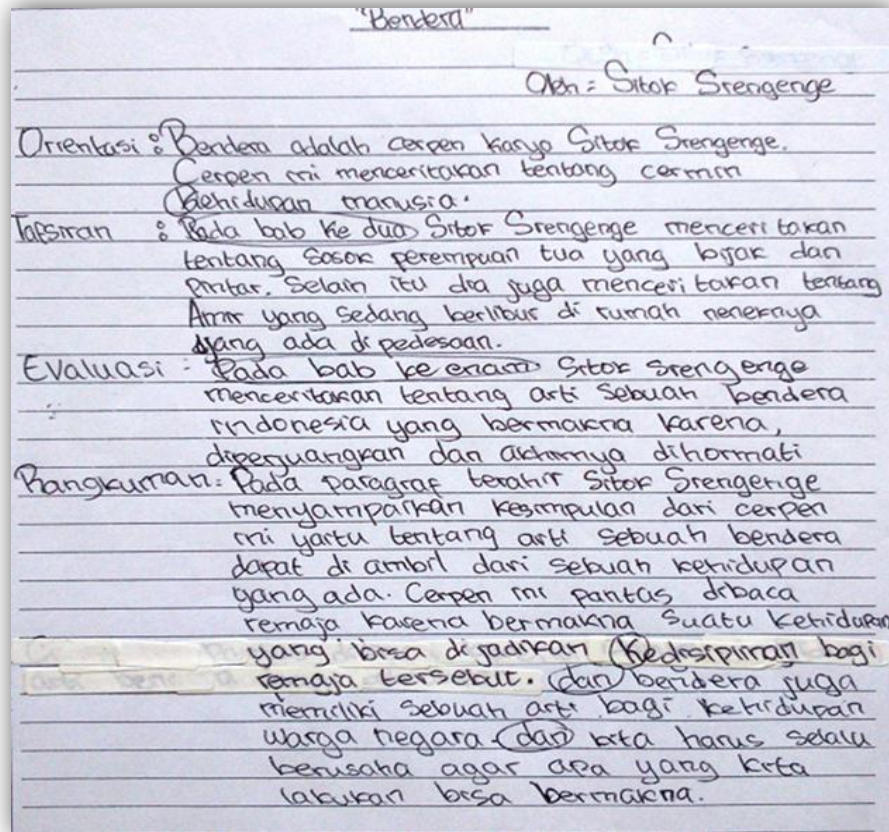 "Bendera"
Oleh = Sitok Srengenge
Orientasi : Bendera adalah cerpen karya Sitok Srengenge.
Cerpen ini menceritakan tentang cermin
Kehidupan manusia.
Tafsiran : Pada bab ke dua Sitok Srengenge menceritakan
tentang sosok perempuan tua yang bijak dan
pintar. Selain itu dia juga menceritakan tentang
Amir yang sedang berlibur di rumah neneknya
yang ada di pedesaan.
Evaluasi : Pada bab ke enam Sitok Srengenge
menceritakan tentang arti sebuah bendera
indonesia yang bermakna karena,
diperjuangkan dan akhirnya dihormati
Rangkuman : Pada paragraf terahir Sitok Srengenge
menyampaikan kesimpulan dari cerpen
ini yaitu tentang arti sebuah bendera
dapat di ambil dari sebuah kehidupan
yang ada. Cerpen ini pantas dibaca
remaja karena bermakna suatu kehidupan
yang bisa dijadikan Kedisiplinan bagi
remaja tersebut. dan bendera juga
memiliki sebuah arti bagi kehidupan
warga negara dan kita harus selalu
berusaha agar apa yang kita
lakukan bisa bermakna.